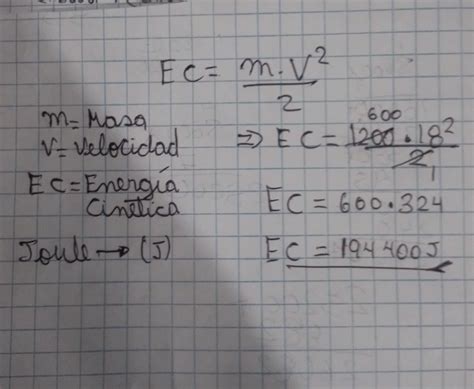 EC = m.V²/2
m = Masa
V = Velocidad
EC = Energía Cinética
Joule → (J)
600
⇒ EC = 1200.18²/2 1
EC = 600.324
EC = 194400J